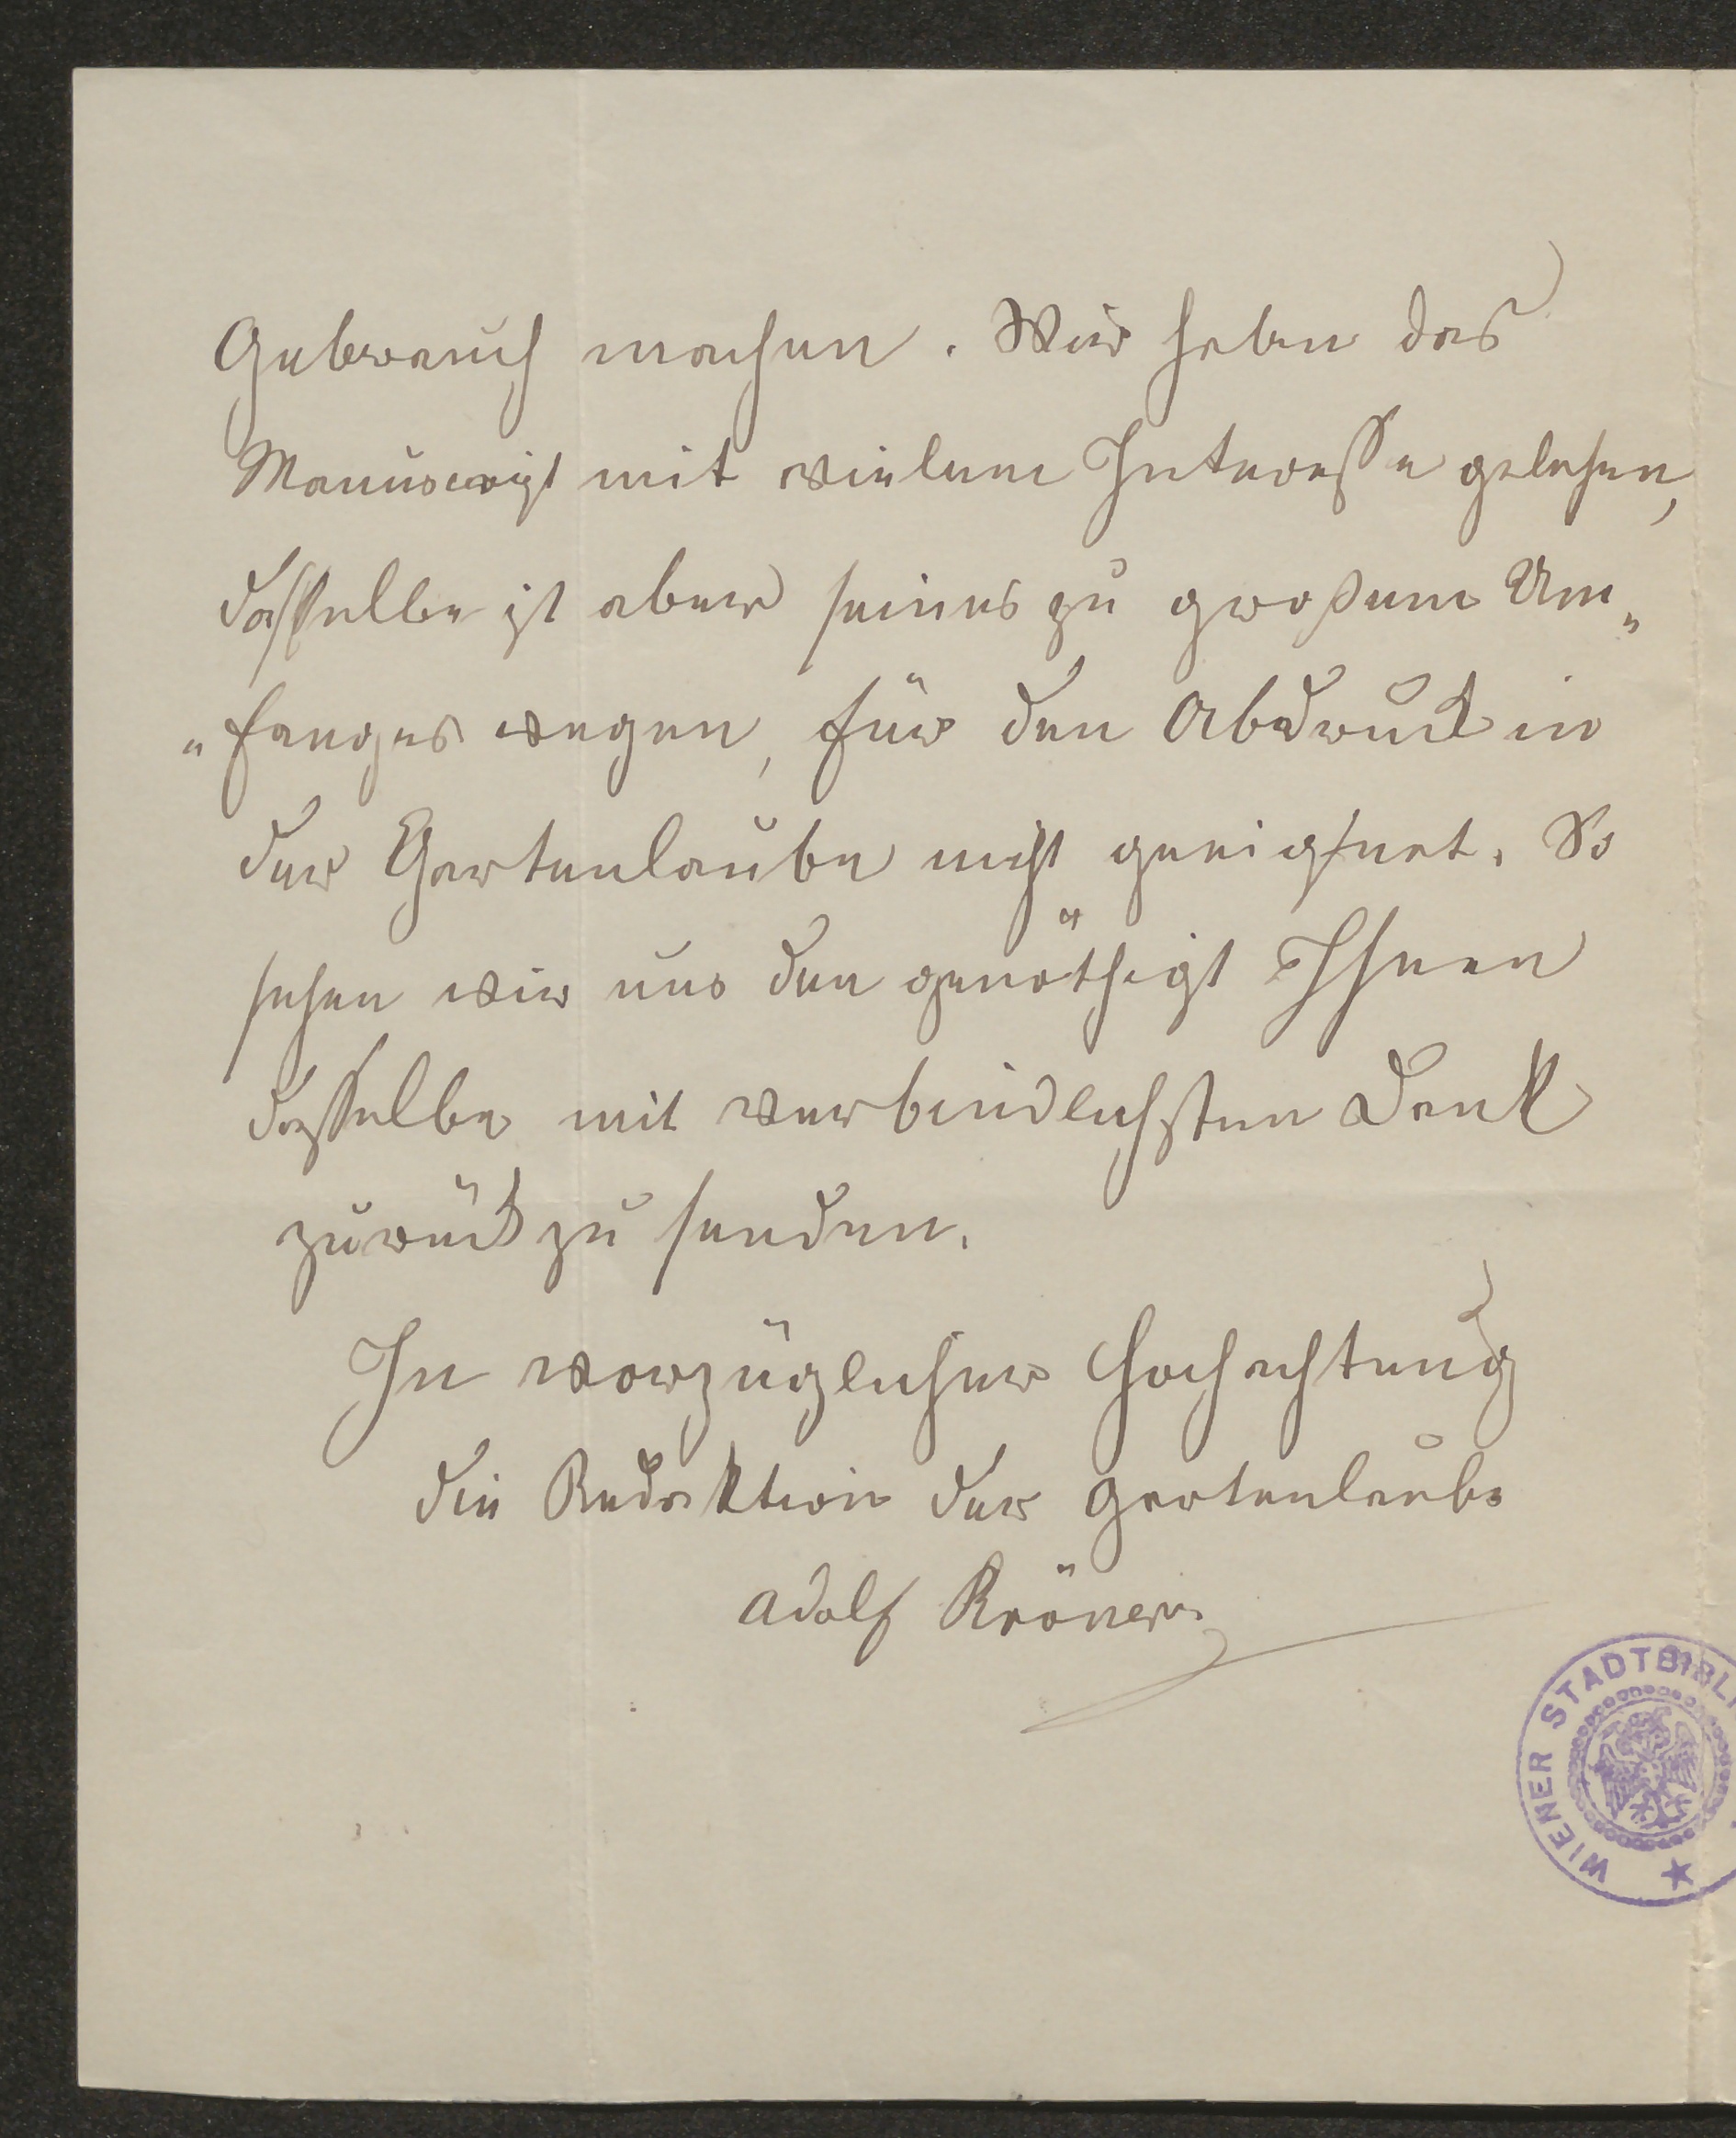 Gebrauch machen. Wir haben das
Manuscript mit vielem Interesse gelesen,
dasselbe ist aber seines zu großem Um„
„fanges wegen, für den Abdruck in
der Gartenlaube nicht geeignet. So
sehen wir uns den genöthigt Ihnen
dasselbe mit verbindlichsten Dank
zurück zu senden.
In vorzüglicher Hochachtung
die Redaktion der Gartenlaube
Adolf Kröner.
WIENER STADTBIBLI